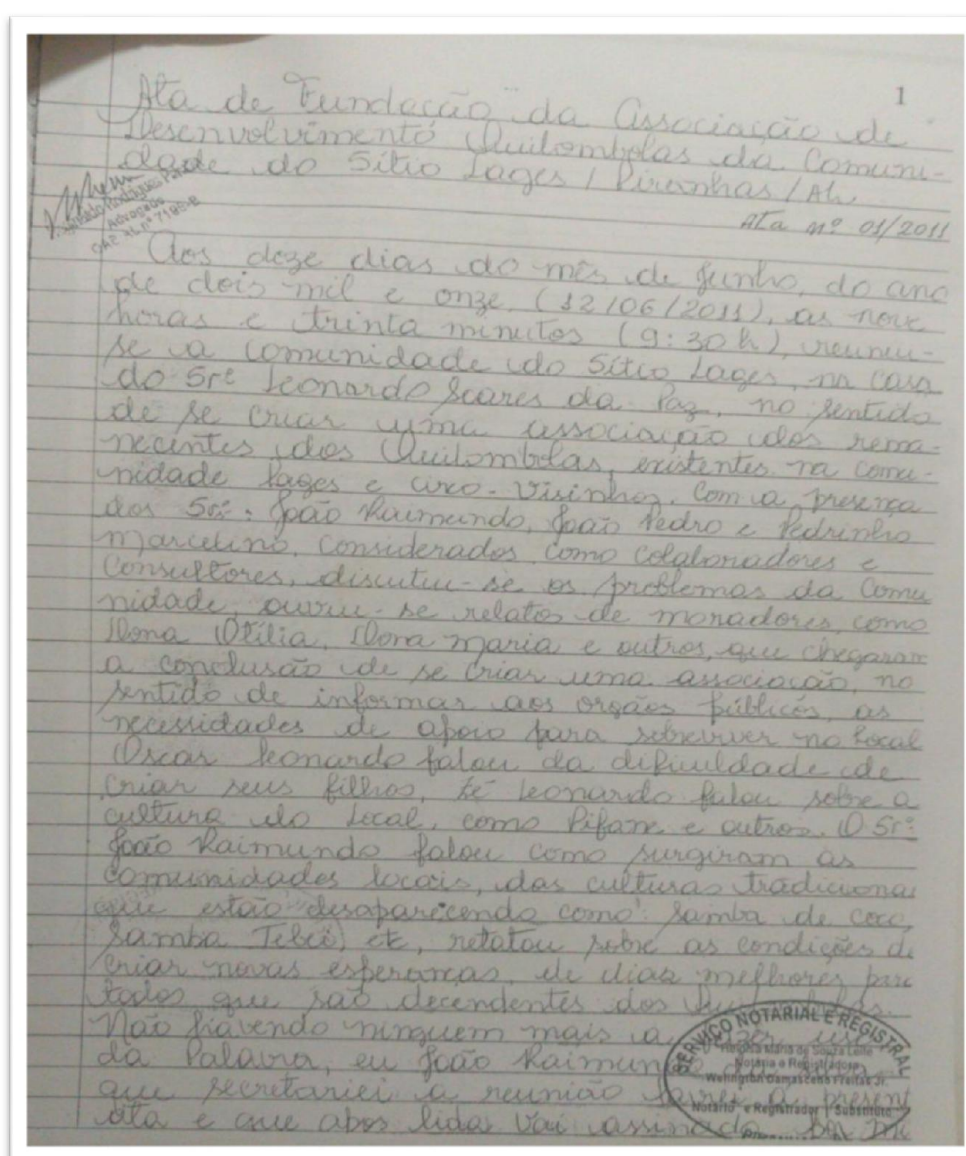 1
Ata de Fundação da Associação de
Desenvolvimento Quilombolas da Comuni-
dade do Sítio Lages / Piranhas / AL.
Rodrigues
Advogado
OAB AL nº
Ata nº 01/2011
Aos doze dias do mês de Junho, do ano
de dois mil e onze (12/06/2011), as nove
horas e trinta minutos (9:30 h), reuniu-
se a comunidade do Sítio Lages, na casa
do Srº Leonardo Soares da Paz, no sentido
de se criar uma associação dos rema-
necentes dos Quilombolas, existentes na comu-
nidade Lages e circo-visinhos. Com a presença
dos Srs: João Raimundo, João Pedro e Pedrinho
Marcelino, considerados como colaboradores e
Consultores, discutiu-se os problemas da Comu
nidade, ouviu-se relatos de moradores como
Dona Otília, Dona Maria e outros, que chegaram
a conclusão de se criar uma associação, no
sentido de informar aos orgãos públicos, as
necessidades de apoio para sobreviver no local
Oscar Leonardo falou da dificuldade de
criar seus filhos, Zé Leonardo falou sobre a
cultura do local, como Pifane e outros. O Srº:
João Raimundo falou como surgiram as
comunidades locais, das culturas tradiciona
que estão desaparecendo como: Samba de coco,
Samba Tebei, etc, relatou sobre as condições de
criar novas esperanças, de dias melhores para
todos que são decendentes dos
Não havendo ninguem mais a
da Palavra, eu João Raimundo
que secretariei a reunião lavrei a present
ata e que apos lida vai assinada por mi
SERVIÇO NOTARIAL E REGISTRAL
Maria de Souza Leite
Notária e Registradora
Wellington Damasceno Freitas Jr.
Notário e Registrador Substituto